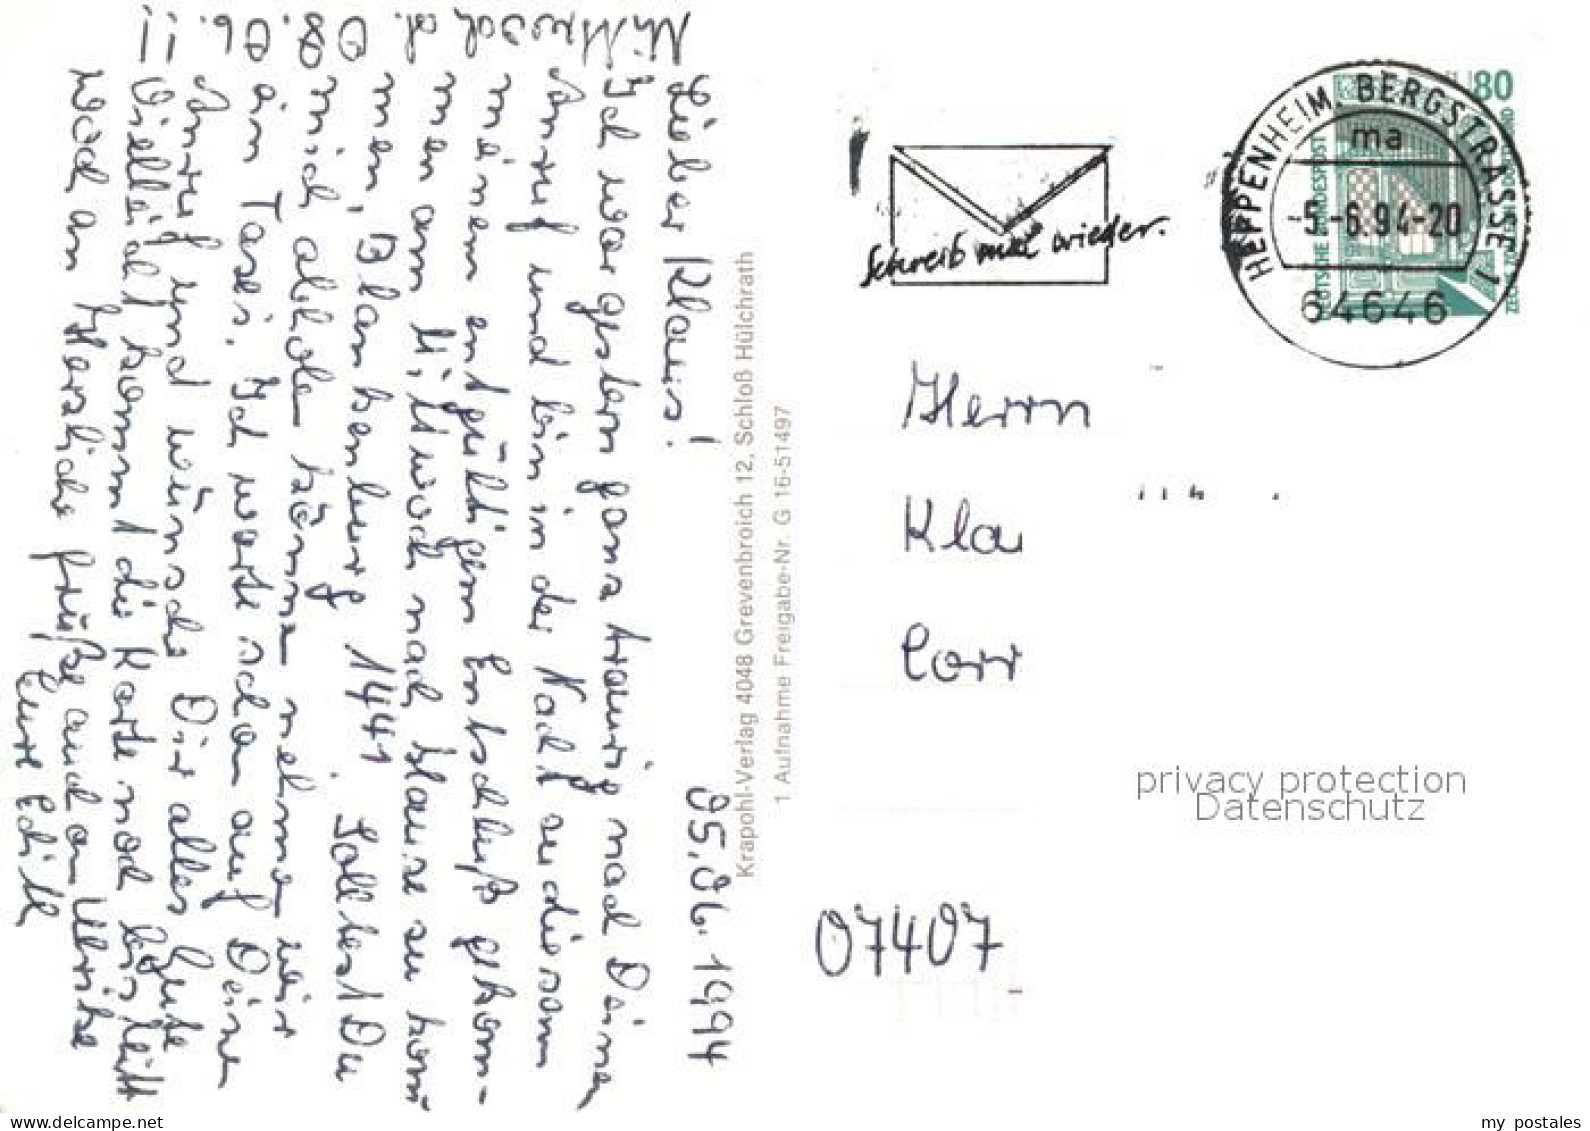 05.06.1994
Lieber Klaus!
Ich war gestern ganz traurig nach Deinem
Anruf und bin in der Nacht zu diesem
meinem entgültigem Entschluß gekom-
men am Mittwoch nach Hause zu kom
men, Blankenburg 1441. Solltest Du
mich abholen können nehmen wir
ein Taxi. Ich warte schon auf Deinen
Anruf und wünsche Dir alles Gute
Vielleicht kommt die Karte noch bis Mitt
woch an Herzliche Grüße auch an Ulrike
Eure Edith
Mittwoch d. 08.06.!!
Krapohl-Verlag 4048 Grevenbroich 12, Schloß Hülchrath
1 Aufnahme Freigabe-Nr. G 16-51497
Schreib mal wieder.
HEPPENHEIM, BERGSTRASSE 1
ma
-5.-6.94-20
64646
80
DEUTSCHE BUNDESPOST
Herrn
Kla
Corr
07407
privacy protection
Datenschutz
www.delcampe.net
my postales